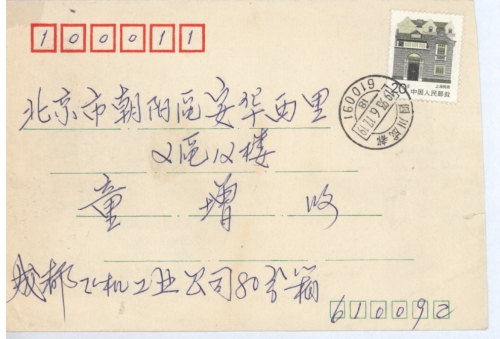 100011
20 上海民居
中国人民邮政
四川成都
610091
北京市朝阳区安华西里
2区12楼
童增收
成都飞机工业公司80分箱
610092